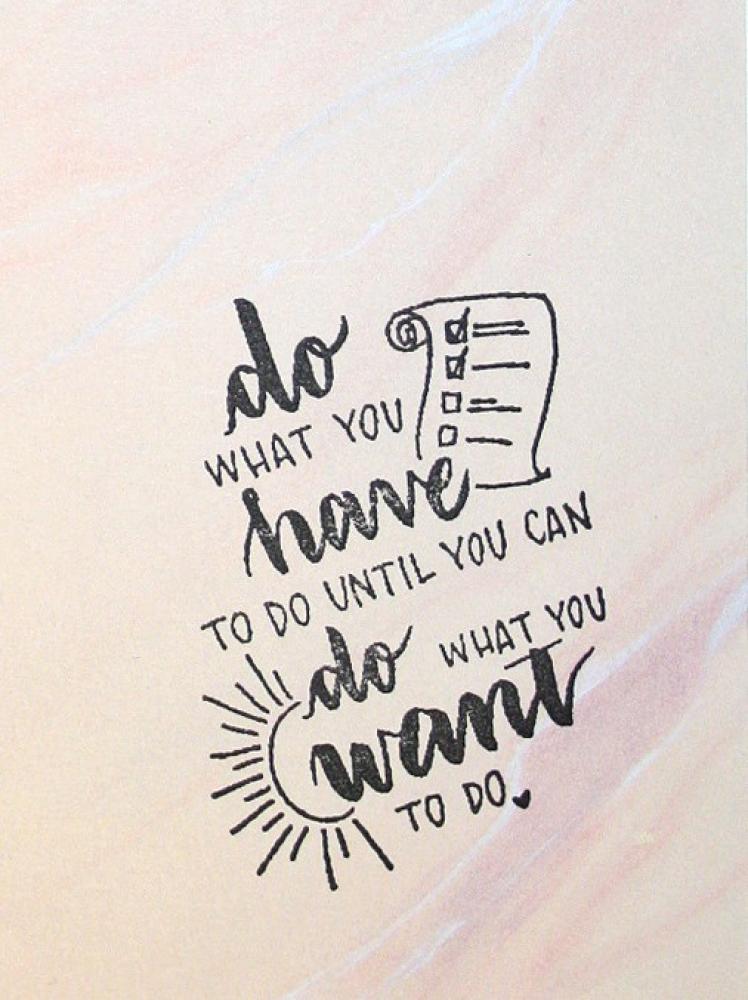 do
WHAT YOU
have
TO DO UNTIL YOU CAN
do WHAT YOU
want
TO DO